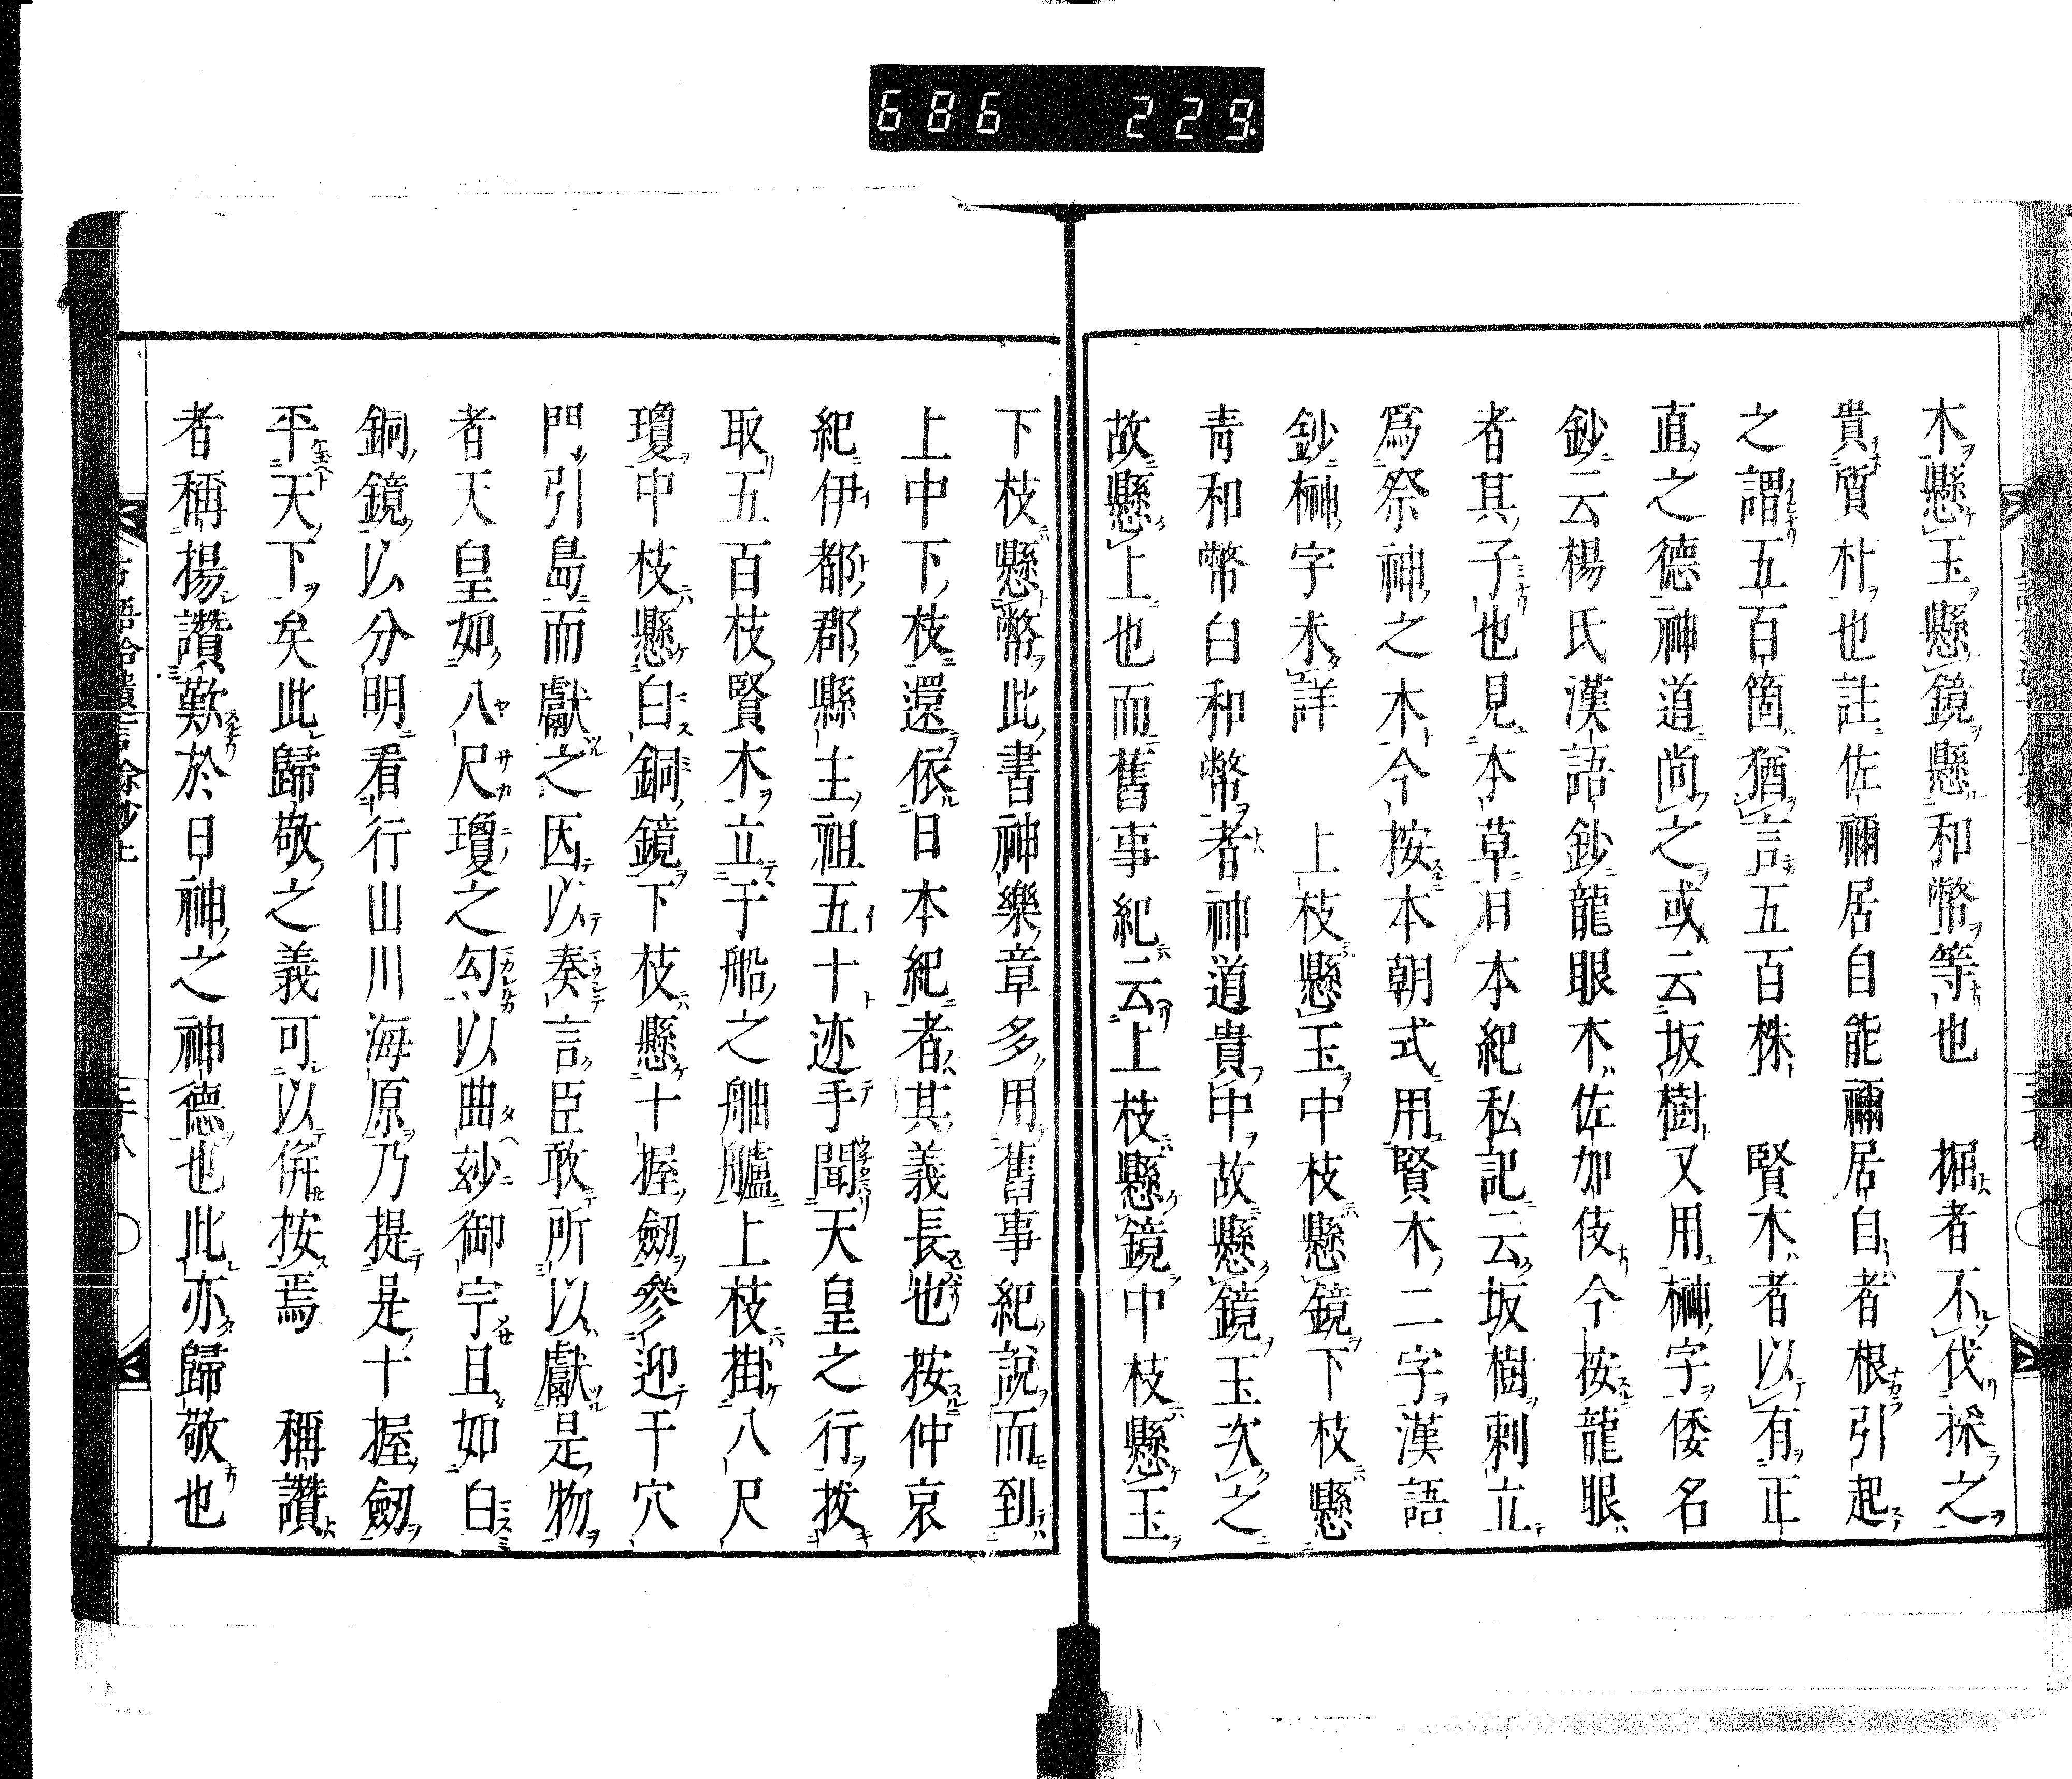 686 229
木懸玉懸鏡懸和幣等也 掘者不伐採之
貴質朴也註佐禰居自能禰居自者根引起
之謂五百箇猶言五百株 賢木者以有正
直之德神道尚之或云坂樹又用榊字倭名
鈔云楊氏漢語鈔龍眼木佐加伎今按龍眼
者其子也見本草日本紀私記云坂樹刺立
爲祭神之木今按本朝式用賢木二字漢語
鈔榊字未詳 上枝懸玉中枝懸鏡下枝懸
靑和幣白和幣者神道貴中故懸鏡玉次之
故懸上也而舊事紀云上枝懸鏡中枝懸玉
下枝懸幣此書神樂章多用舊事紀說而到
上中下枝還依日本紀者其義長也 按仲哀
紀伊都郡縣主祖五十迹手聞天皇之行拔
取五百枝賢木立于船之舳艫上枝掛八尺
瓊中枝懸白銅鏡下枝懸十握劒參迎于穴
門引島而獻之因以奏言臣敢所以獻是物
者天皇如八尺瓊之勾以曲玅御宇且如白
銅鏡以分明看行山川海原乃提是十握劒
平天下矣此歸敬之義可以併按焉 稱讚
者稱揚讚歎於日神之神德也此亦歸敬也
古語拾遺言餘抄上